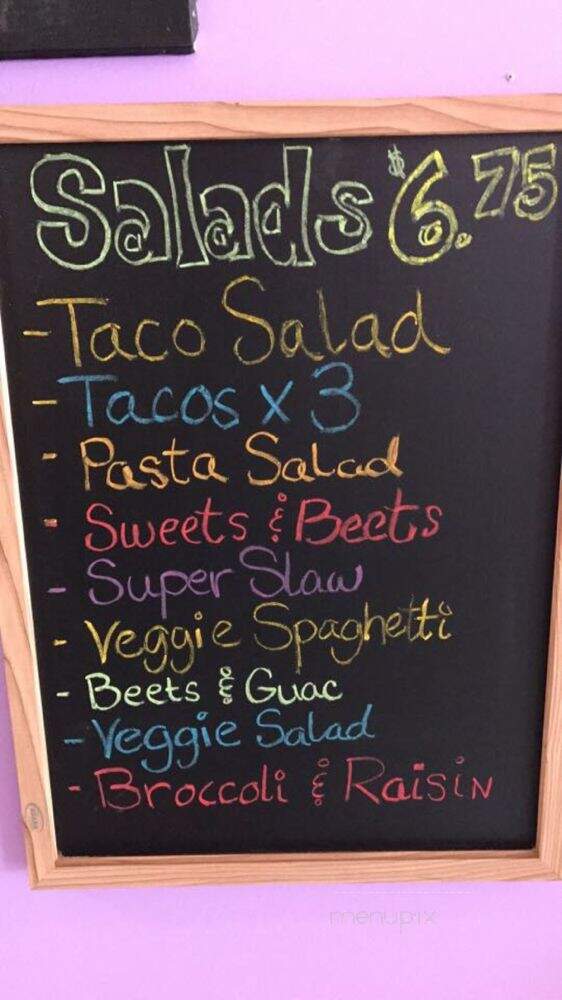 Salads $6.75
- Taco Salad
- Tacos x 3
- Pasta Salad
- Sweets & Beets
- Super Slaw
- Veggie Spaghetti
- Beets & Guac
- Veggie Salad
- Broccoli & Raisin
menupix